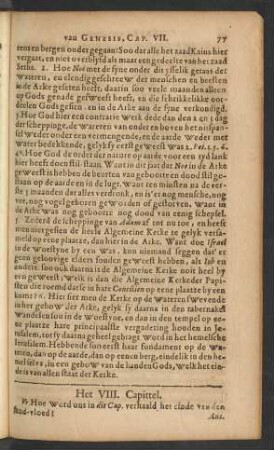 van GENESIS, CAP. VII. 77
ten en bergen onder gegaan: Soo dat alle het zaad Kains hier
vergaat, en niet overblyft als maar een gedeelte van het zaad
Seths. 2. Hoe Noë met de syne onder dit ysselik geraas der
wateren, en elendig geschreeuw der menschen en beesten
in de Arke geseten heeft, daar in soo vele maanden alleen
op Gods genade geswееft heeft, en die schrikkelikke oor-
deelen Gods gesien, en in de Arke aan de syne verkondigt.
3. Hoe God hier een contrarie werk dede dan den 2 en 3 dag
der scheppinge, de wateren van onder en boven het uitspan-
sel weder onder een vermengende, en de aarde weder met
water bedekkende, gelyk sy eerst geweest was 2. Pet. 2. 5. 6.
4. Hoe God de order der nature op aarde voor een tyd lank
hier heeft doen stil staan. Want in dit jaar dat Noë in de Arke
geweest is hebben de
op de aarde en in de lugt, want ten minsten na de ver-
ste 5 maanden dar alles verdronk, en is'er nog mensche, nog
vee, nog vogel geboren geworden of gestorven. Want in
de Arke was nog geboorte nog dood van eenig schepsel.
5. Zedert de scheppinge van Adam af tot nu toe, en heeft
men niet gesien de heele Algemeine Kerke te gelyk versa-
meld op eene plaatse, dan hier in de Arke. Want doe Israel
in de woestyne by een was, kon niemand seggen dat'er
geen geloovige elders souden geweest hebben, als Job en
andere. soo ook daarna is de Algemeine Kerke noit heel by
een geweest, gelyk dan die Algemeine Kerke der Papi-
sten die roemd darse in hare Concilien op eene plaatse by een
komt. Hier siet men de Kerke op de wateren swevende
in het gebow der Arke, gelyk sy daarna in den tabernakel
wandelen sou in de Woestyne, en dan in den tempel op een
harde plaatse hare principaalste vergadering houden in Je-
rusalem, tot sy daarna geheel gebragt word in het hemelsche
Jerusalem. Hebbende soo eerst haar fundament op de wa-
teren, dan op de aarde, dan op eenen berg, eindelik in den he-
mel selve, in een gebow van de handen Gods, Welk het ein-
de is van allen staat der Kerke.
Het VIII. Capittel.
Hoe word ons in dit Cap. verhaald het einde van den
zund-vloed?
Ant.